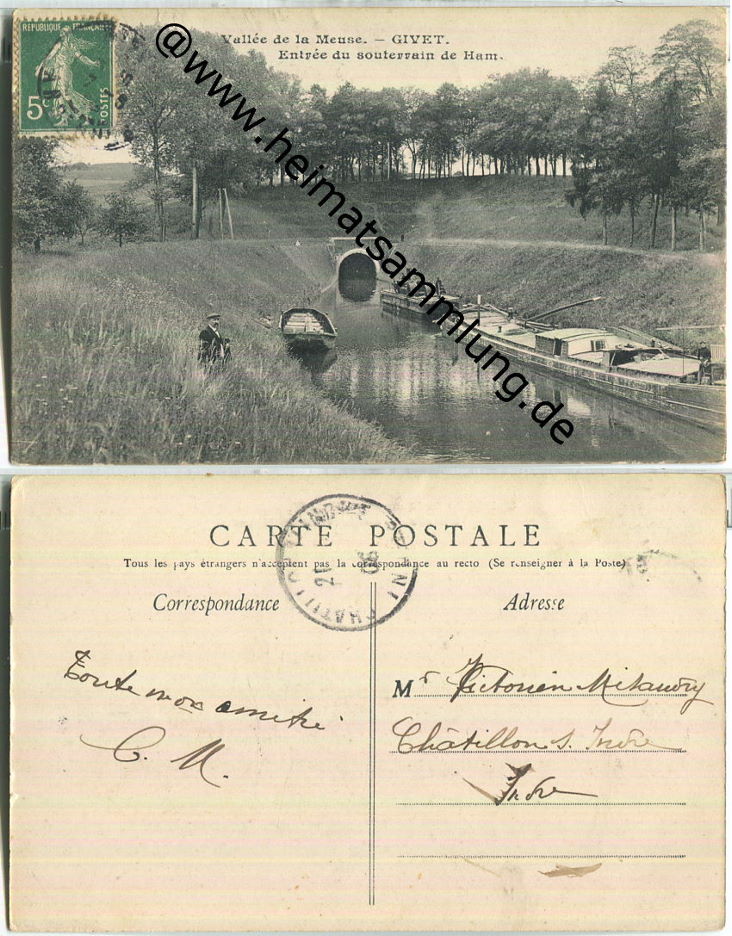 Vallée de la Meuse. — GIVET.
Entrée du souterrain de Ham.
REPUBLIQUE FRANÇAISE
5c
POSTES
@www.heimatsammlung.de
CARTE POSTALE
Tous les pays étrangers n'acceptent pas la correspondance au recto (Se renseigner à la Poste)
Correspondance
Adresse
CHATILLON
INDRE
Toute mon amitié
C. M.
Mr Victorien
Châtillon s. Indre
Indre